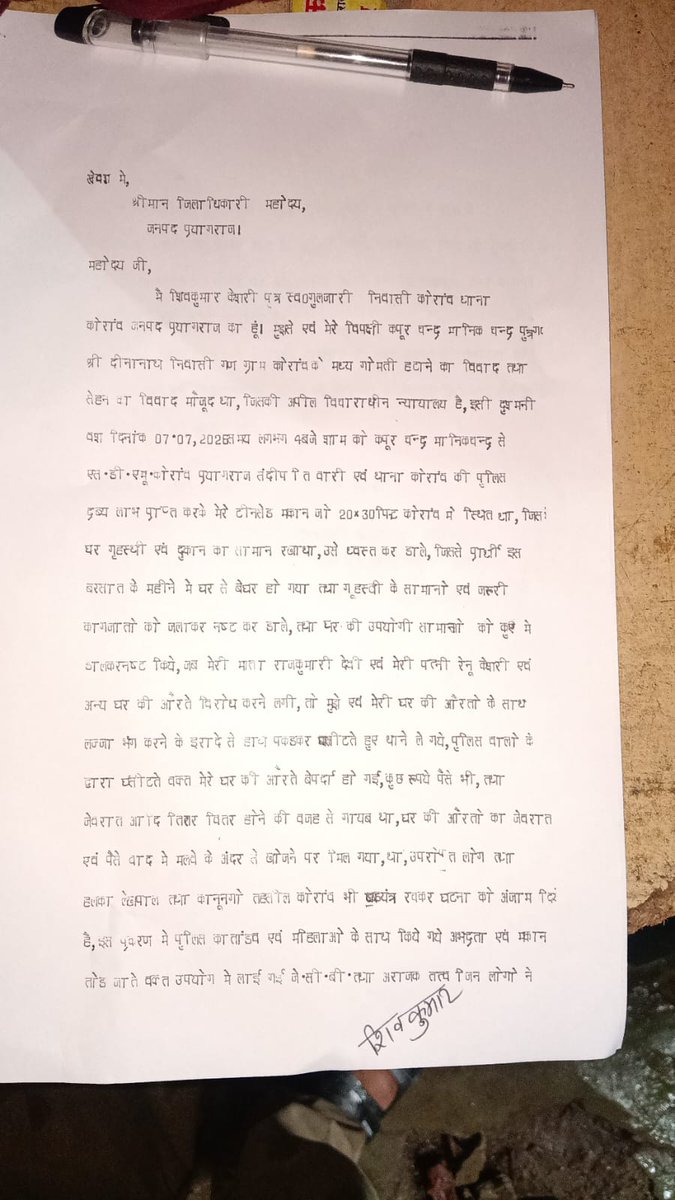 सेवा मे,
श्रीमान जिलाधिकारी महोदय,
जनपद प्रयागराज।
महोदय जी,
मै शिवकुमार केशरी पुत्र स्व0गुलजारी निवासी कोरांव थाना
कोरांव जनपद प्रयागराज का हूं। मुझसे एवं मेरे विपक्षी कपूर चन्द्र मानिक चन्द्र पुत्रगण
श्री दीनानाथ निवासी गण ग्राम कोरांव के मध्य गोमती हटाने का विवाद तथा
सेहन का विवाद मौजूद था, जिसकी अपील विचाराधीन न्यायालय है, इसी दुश्मनी
वश दिनांक 07·07,2026समय लगभग 4बजे शाम को कपूर चन्द्र मानिकचन्द्र से
एस·डी·एम·कोरांव प्रयागराज संदीप तिवारी एवं थाना कोरांव की पुलिस
द्रव्य लाभ प्राप्त करके मेरे टीनसेड मकान जो 20×30फिट कोरांव मे स्थित था, जिसमे
घर गृहस्थी एवं दुकान का सामान रखाथा, उसे ध्वस्त कर डाले, जिससे प्रार्थी इस
बरसात के महीने मे घर से बेघर हो गया तथा गृहस्थी के सामानो एवं जरूरी
कागजातो को जलाकर नष्ट कर डाले, तथा घर की उपयोगी सामानो को कुए मे
डालकरनष्ट किये, जब मेरी माता राजकुमारी देवी एवं मेरी पत्नी रेनू केशरी एवं
अन्य घर की औरते विरोध करने लगी, तो मुझे एवं मेरी घर की औरतो के साथ
लज्जा भंग करने के इरादे से हाथ पकडकर घसीटते हुए थाने ले गये, पुलिस वालो के
द्वारा घसीटते वक्त मेरे घर की औरते बेपर्दा हो गई, कुछ रूपये पैसे भी, तथा
जेवरात आदि तितर वितर होने की वजह से गायब था, घर की औरतो का जेवरात
एवं पैसे बाद मे मलवे के अंदर से खोजने पर मिल गया, था, उपरोक्त लोग तथा
हलका लेखपाल तथा कानूनगो तहसील कोरांव भी षडयंत्र रचकर घटना को अंजाम दिये
है, इस प्रकरण मे पुलिस का तांडव एवं महिलाओ के साथ किये गये अभद्रता एवं मकान
तोड जाते वक्त उपयोग मे लाई गई जे·सी·बी·तथा अराजक तत्व जिन लोगो ने
शिवकुमार